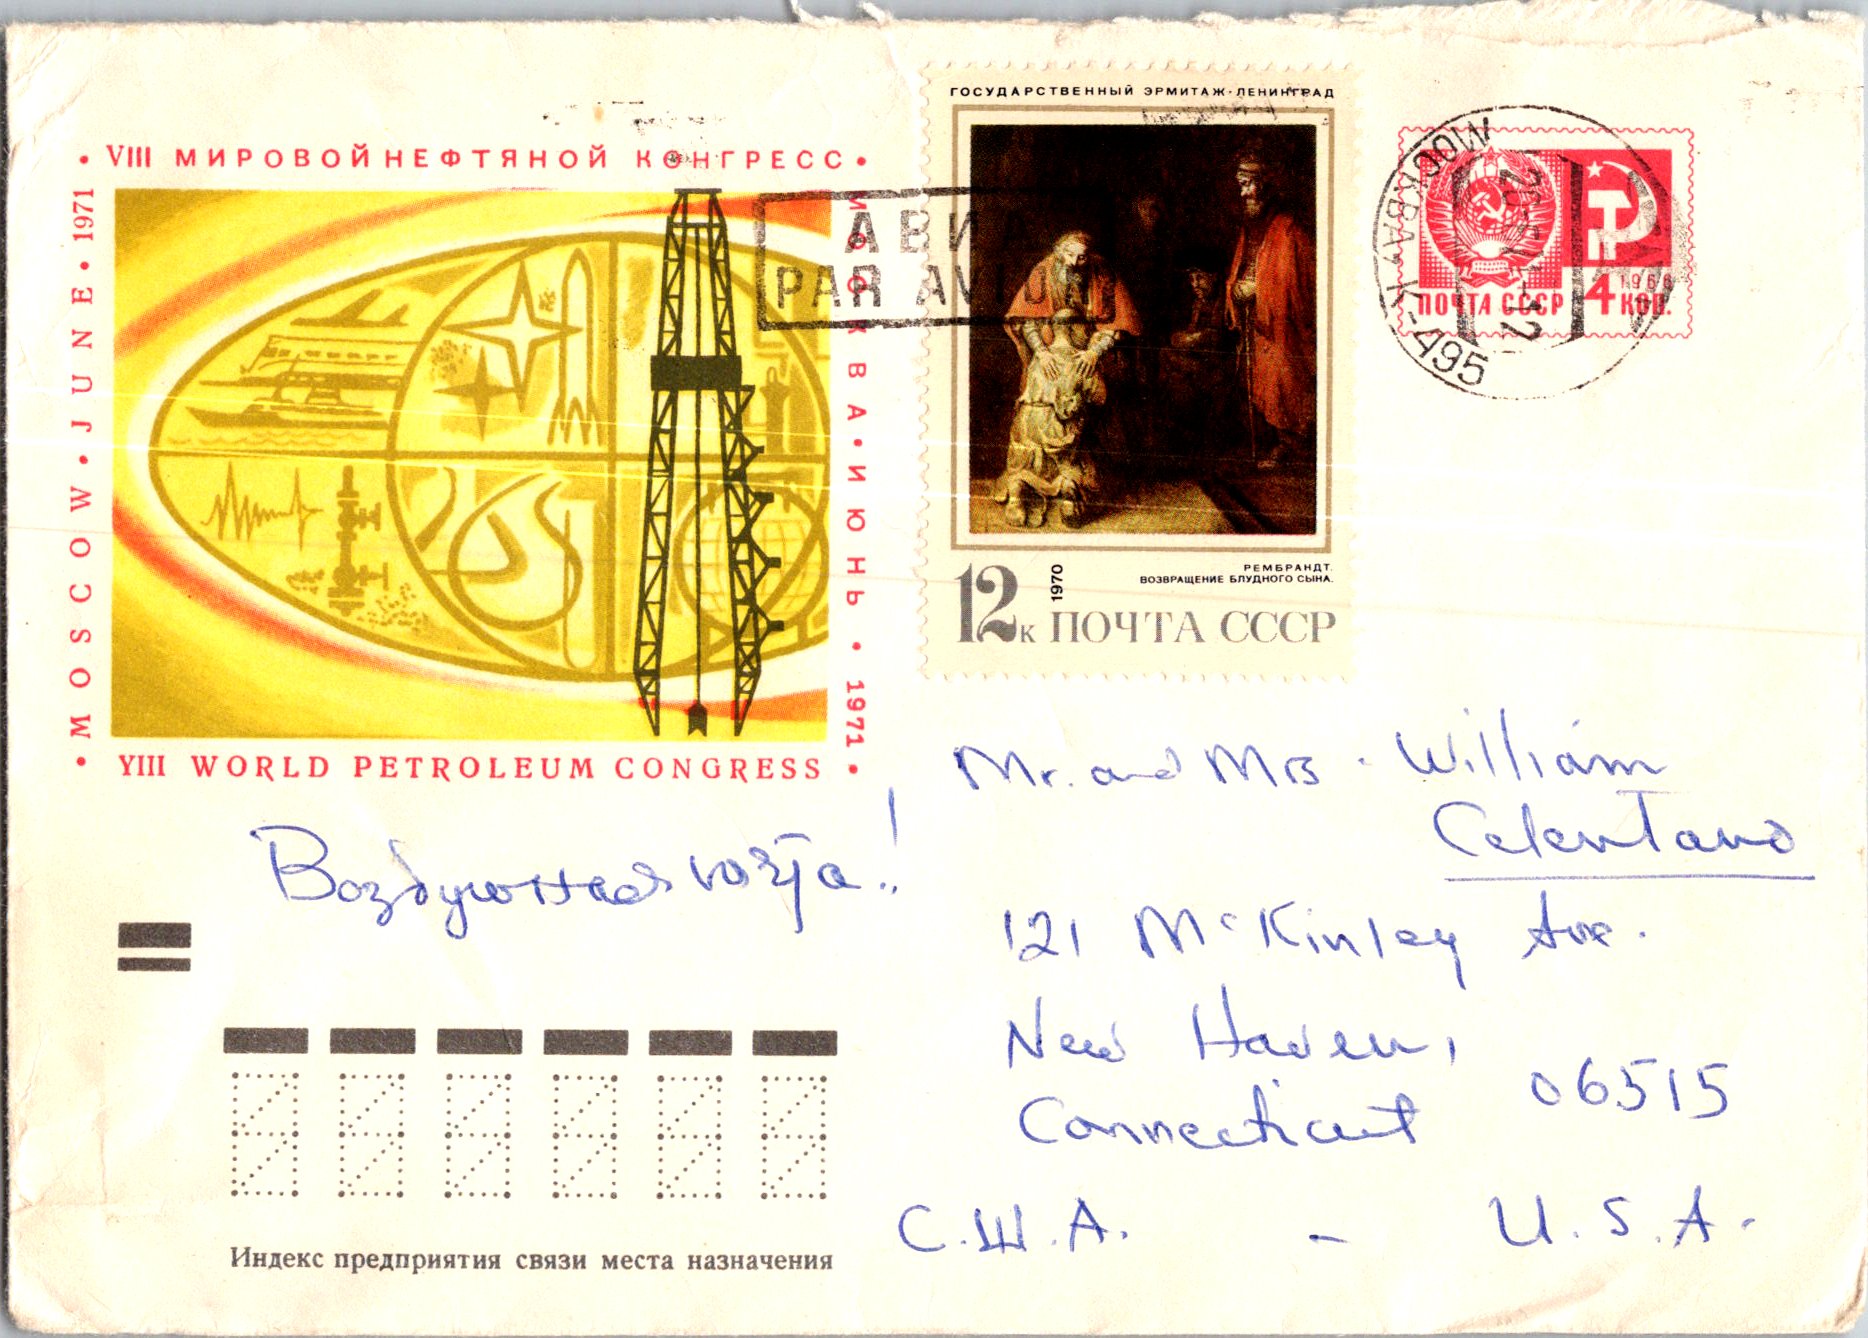 · VIII МИРОВОЙ НЕФТЯНОЙ КОНГРЕСС ·
· MOSCOW · JUNE · 1971
МОСКВА · ИЮНЬ · 1971
· VIII WORLD PETROLEUM CONGRESS ·
АВИА
PAR AVION
ГОСУДАРСТВЕННЫЙ ЭРМИТАЖ · ЛЕНИНГРАД
РЕМБРАНДТ.
ВОЗВРАЩЕНИЕ БЛУДНОГО СЫНА.
12к 1970 ПОЧТА СССР
МОСКВА
-495
1966
ПОЧТА СССР 4 КОП.
Mr. and Mrs. William
Celentano
Воздушная почта!
121 McKinley Ave.
New Haven,
Connecticut 06515
С.Ш.А. - U.S.A.
Индекс предприятия связи места назначения